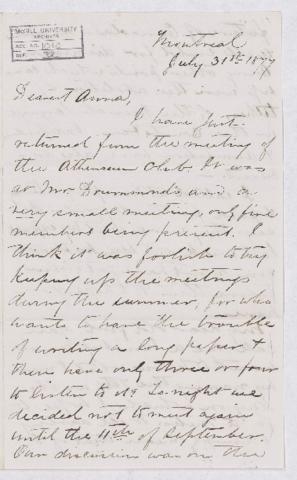 McGILL UNIVERSITY
ARCHIVES
ACC. NO.
REF.
Montreal
July 31st 1877
Dearest Anna,
I have just
returned from the meeting of
the Athenaeum Club. It was
at Mr. Drummond's and a
very small meeting, only five
members being present. I
think it was foolish to try
keeping up the meetings
during the summer, for who
wants to have the trouble
of writing a long paper &
then have only three or four
to listen to it. To-night we
decided not to meet again
until the 11th of September.
Our discussion was on the